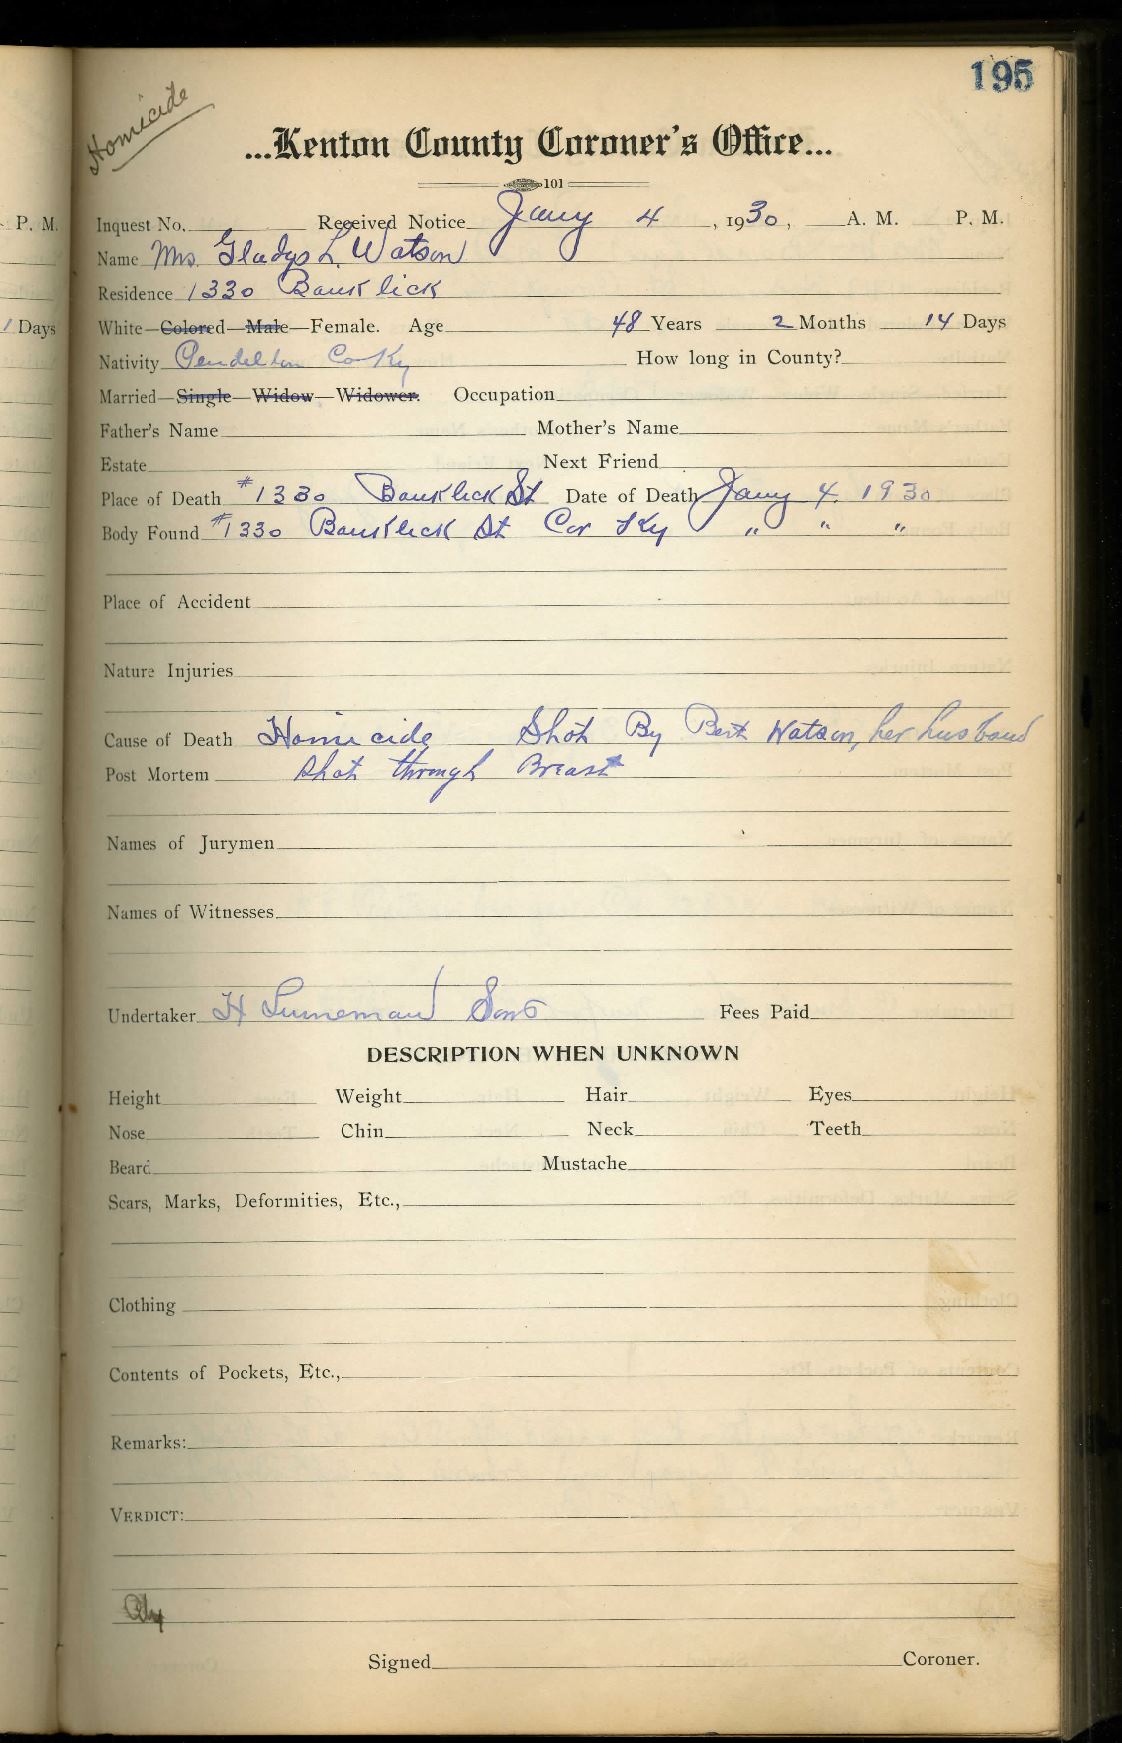 195
Homicide
...Kenton County Coroner's Office...
101
Inquest No. Received Notice Jany 4, 1930, A. M. P. M.
Name Mrs. Gladys L. Watson
Residence 1330 Banklick
White—Colored—Male—Female. Age 48 Years 2 Months 14 Days
Nativity Pendelton Co Ky How long in County?
Married—Single—Widow—Widower. Occupation
Father's Name Mother's Name
Estate Next Friend
Place of Death #1330 Banklick St Date of Death Jany 4. 1930
Body Found #1330 Banklick St Cov Ky " " "
Place of Accident
Nature Injuries
Cause of Death Homicide Shot By Bert Watson, her husband
Post Mortem Shot through Breast
Names of Jurymen
Names of Witnesses
Undertaker H Linneman Sons Fees Paid
DESCRIPTION WHEN UNKNOWN
Height Weight Hair Eyes
Nose Chin Neck Teeth
Beard Mustache
Scars, Marks, Deformities, Etc.,
Clothing
Contents of Pockets, Etc.,
Remarks:
VERDICT:
Signed Coroner.
P. M.
1 Days